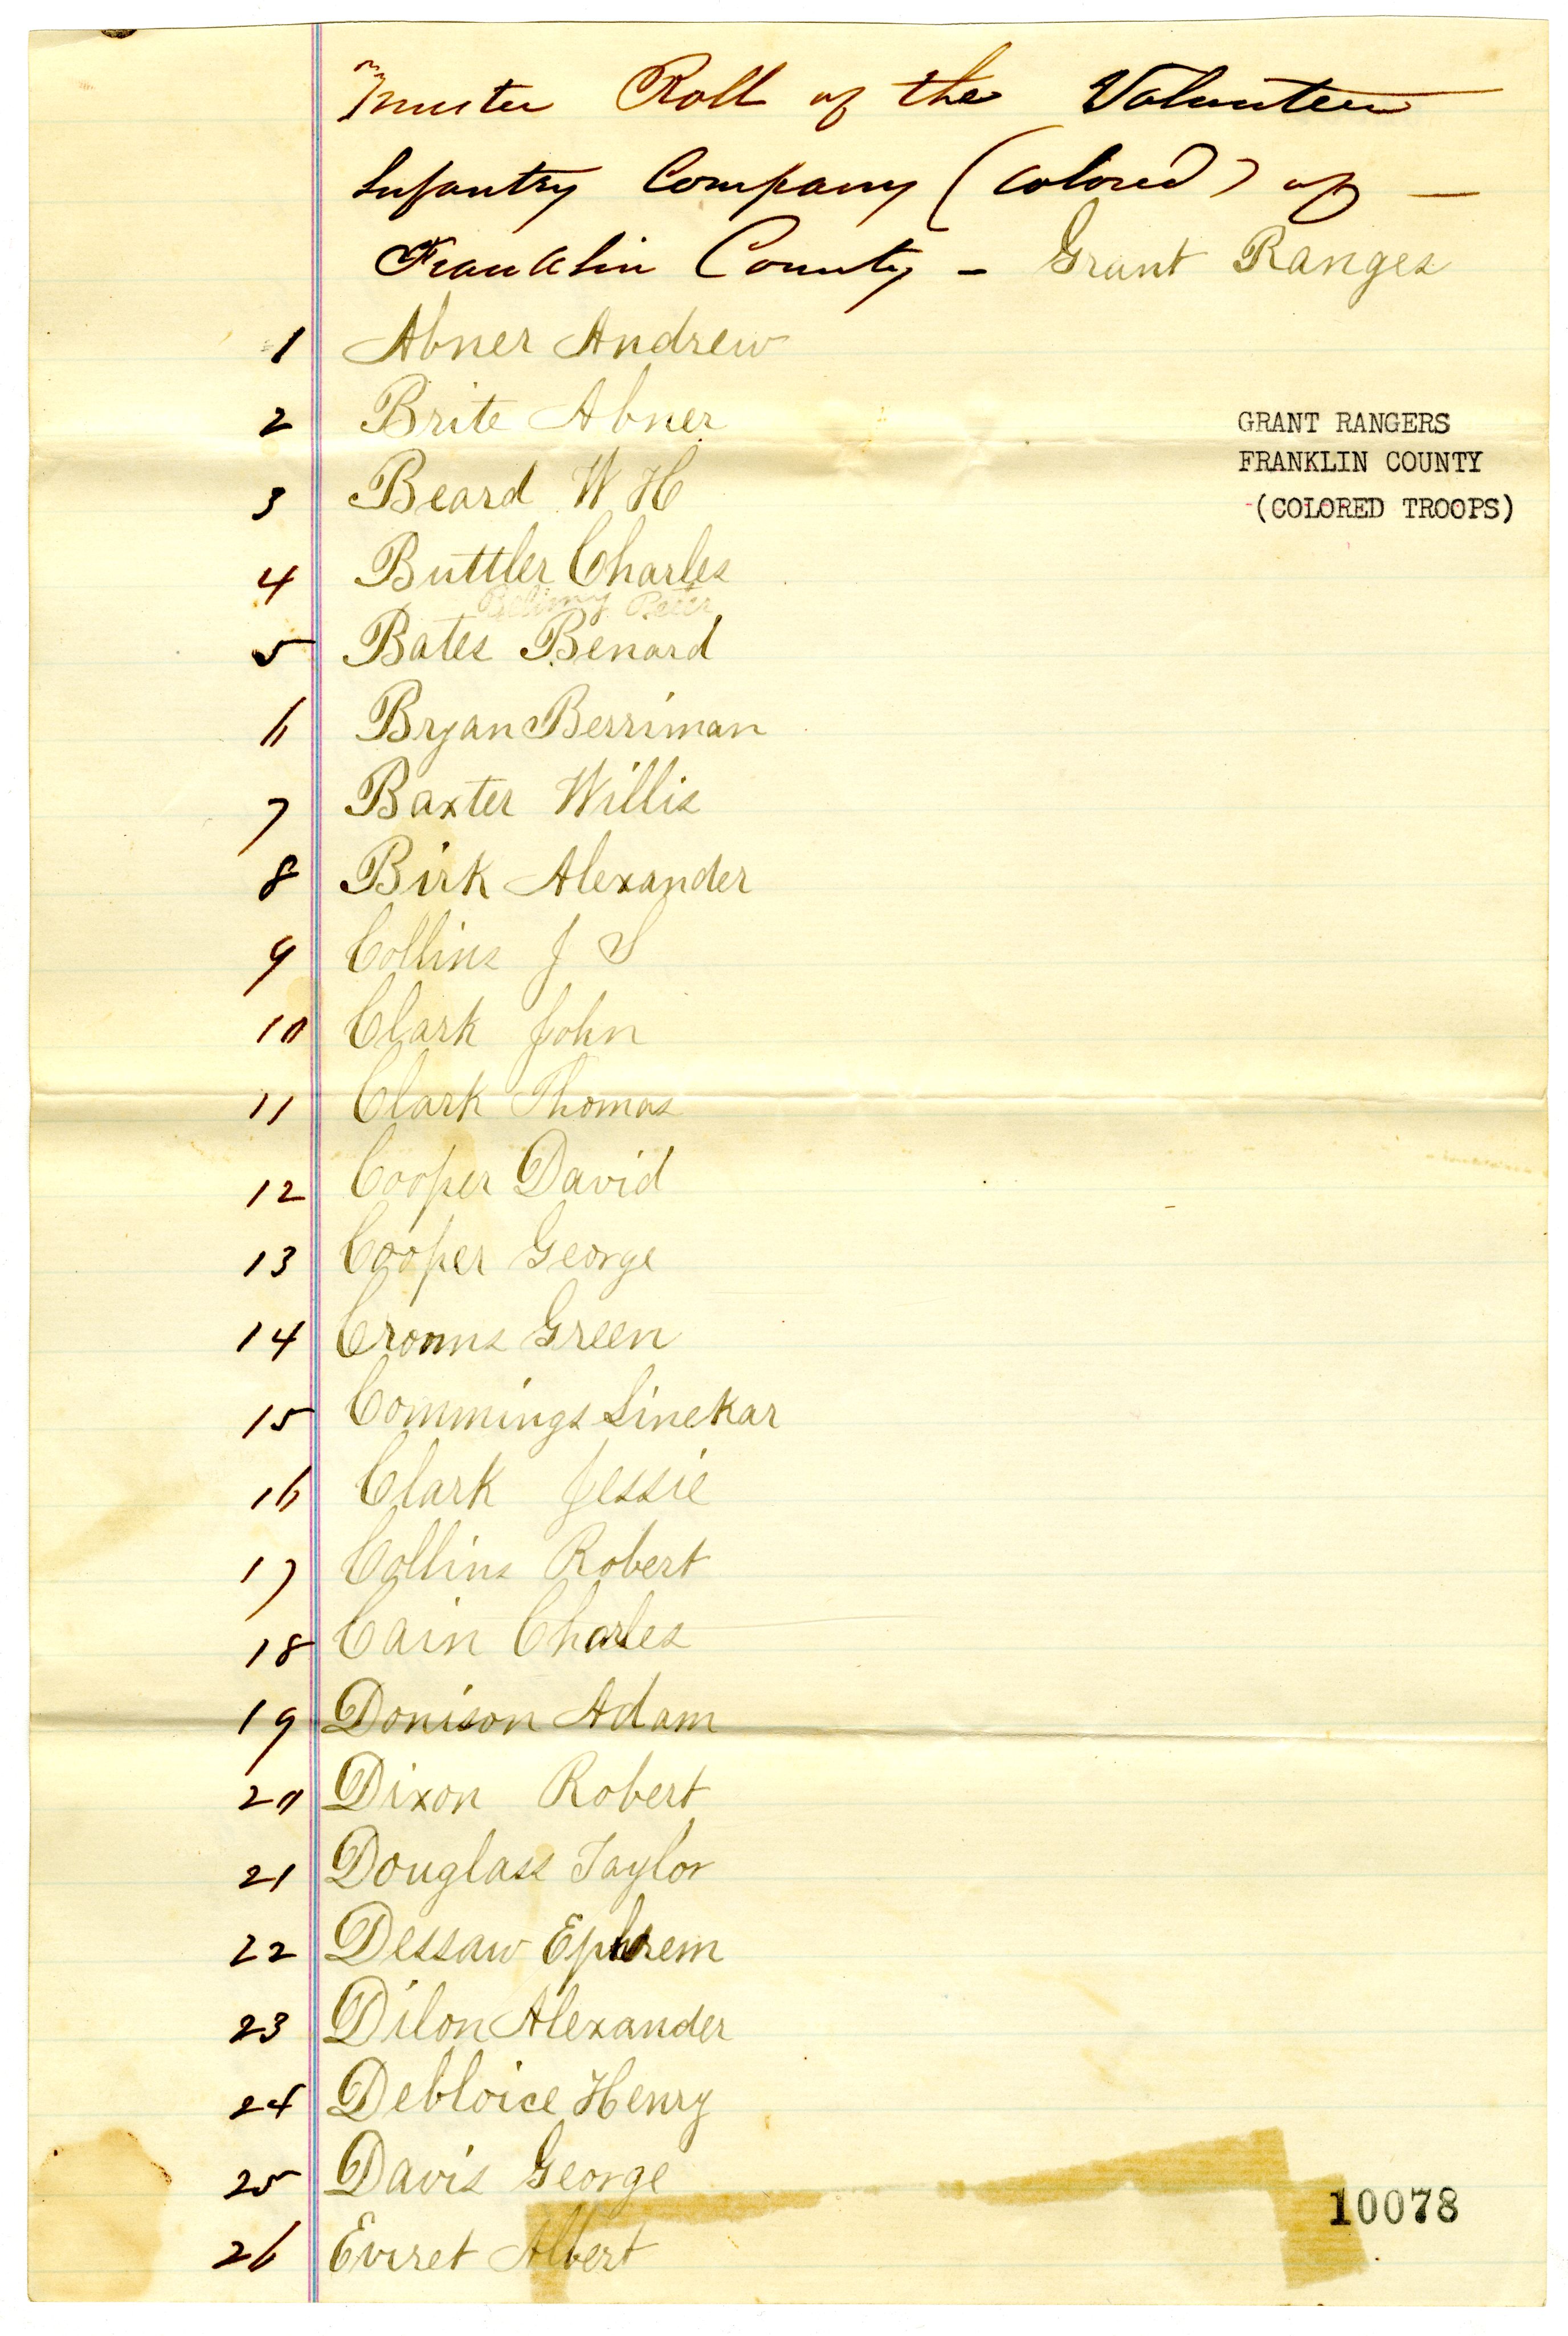 Muster Roll of the Volunteer
Infantry Company (Colored) of —
Franklin County - Grant Ranges
1 Abner Andrew
2 Brite Abner
GRANT RANGERS
FRANKLIN COUNTY
(COLORED TROOPS)
3 Beard W H
4 Buttler Charles
Bellimy Peter
5 Bates Benard
6 Bryan Berriman
7 Baxter Willis
8 Birk Alexander
9 Collins J S
10 Clark John
11 Clark Thomas
12 Cooper David
13 Cooper George
14 Crooms Green
15 Commings Sinekar
16 Clark Jessie
17 Collins Robert
18 Cain Charles
19 Donison Adam
20 Dixon Robert
21 Douglass Taylor
22 Dessaw Ephrem
23 Dilon Alexander
24 Debloice Henry
25 Davis George
10078
26 Everet Albert